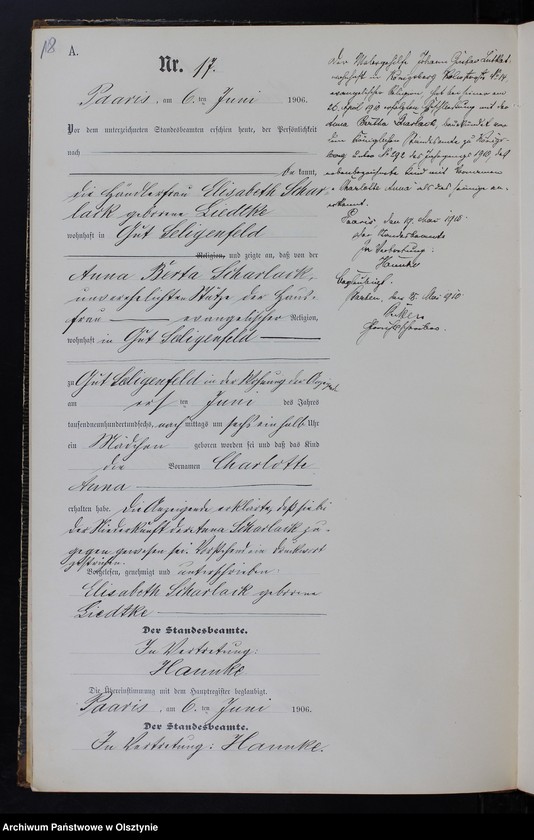 18
A.
Nr. 17.
Paaris, am 6. ten Juni 1906.
Vor dem unterzeichneten Standesbeamten erschien heute, der Persönlichkeit
nach
be kannt,
die Händlerfrau Elisabeth Schar
lack geborene Liedtke
wohnhaft in Gut Seligenfeld
Religion, und zeigte an, daß von der
Anna Berta Scharlack,
unverehelichten Stütze der Haus-
frau evangelischer Religion,
wohnhaft in Gut Seligenfeld
zu Gut Seligenfeld in der Wohnung der
am ersten Juni des Jahres
tausendneunhundertundsechs, nach mittags um sechs einhalb Uhr
ein Mädchen geboren worden sei und daß das Kind
die Vornamen Charlotte
Anna
erhalten habe. Die Anzeigende erklärte, daß sie bei
der Niederkunft der Anna Scharlack zu-
gegen gewesen sei. Vorstehend ein Druckwort
gestrichen.
Vorgelesen, genehmigt und unterschrieben
Elisabeth Scharlack geborene
Liedtke
Der Standesbeamte.
In Vertretung:
Hannke
Die Übereinstimmung mit dem Hauptregister beglaubigt.
Paaris, am 6. ten Juni 1906.
Der Standesbeamte.
In Vertretung: Hannke.
Der Malergehilfe Johann Gustav
wohnhaft in Königsberg No 14
evangelischer Religion, hat bei seiner am
26. April 1910 erfolgten Eheschließung mit der
Anna Bertha Scharlack, beurkundet vor
dem Königlichen Standesamte zu Königs-
berg No 292 des Jahrganges 1910, das
nebenbezeichnete Kind mit Vornamen
"Charlotte Anna" als das seinige an-
erkannt.
Paaris, den 19. Mai 1910.
Der Standesbeamte
In Vertretung:
Hannke
Beglaubigt.
den Mai 1910
Archiwum Państwowe w Olsztynie